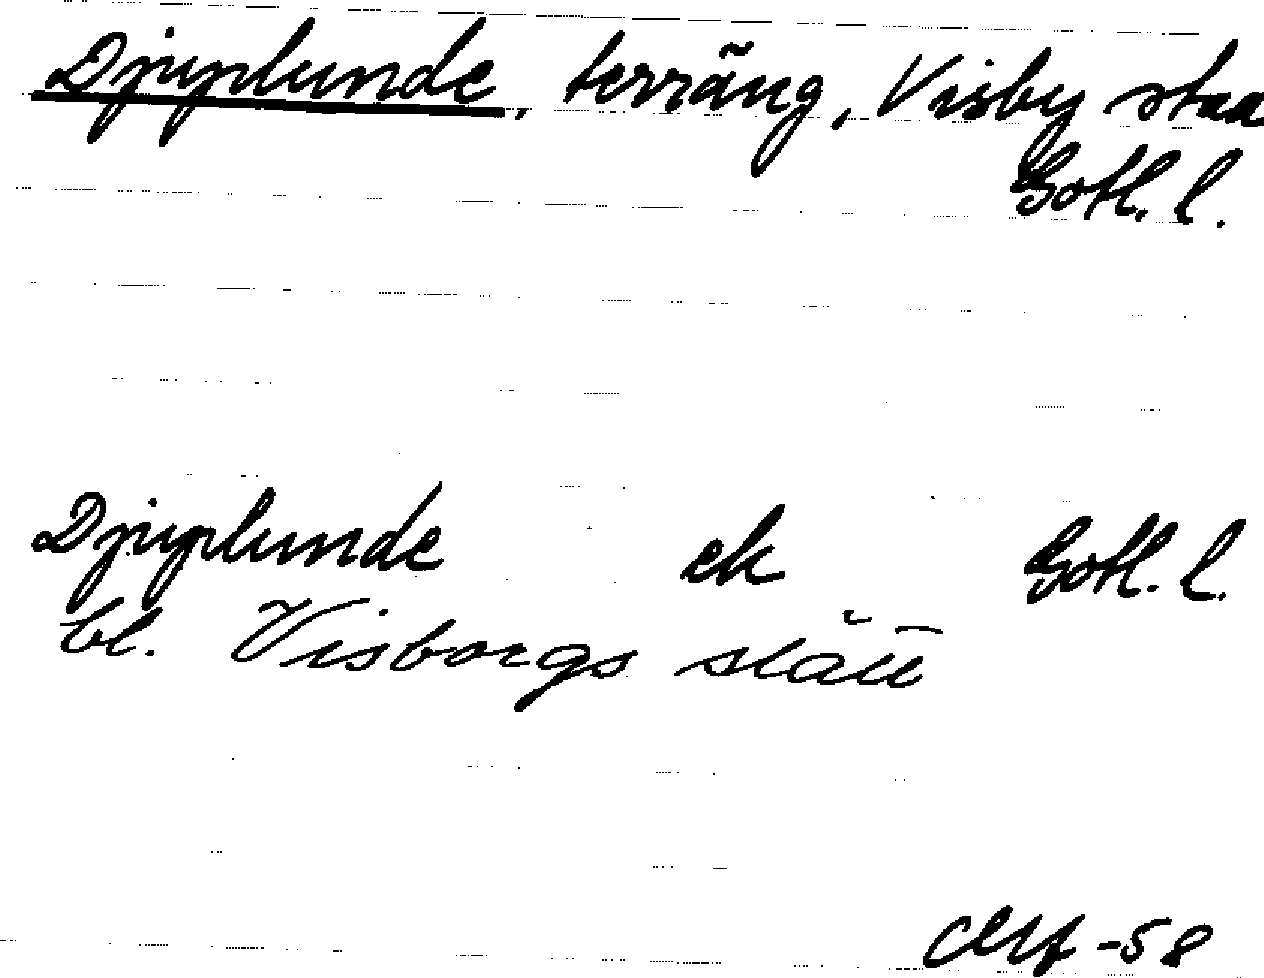 Djuplunde, terräng, Visby sta
Gotl. l.
Djuplunde ek Gotl. l.
bl. Visborgs slätt
-58